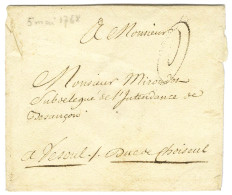 5 mai 1768
A Monsieur
Monsieur Miroudot
Subdelegué de l'Intendance de
Besançon
a Vesoul /. Duc de Choiseul